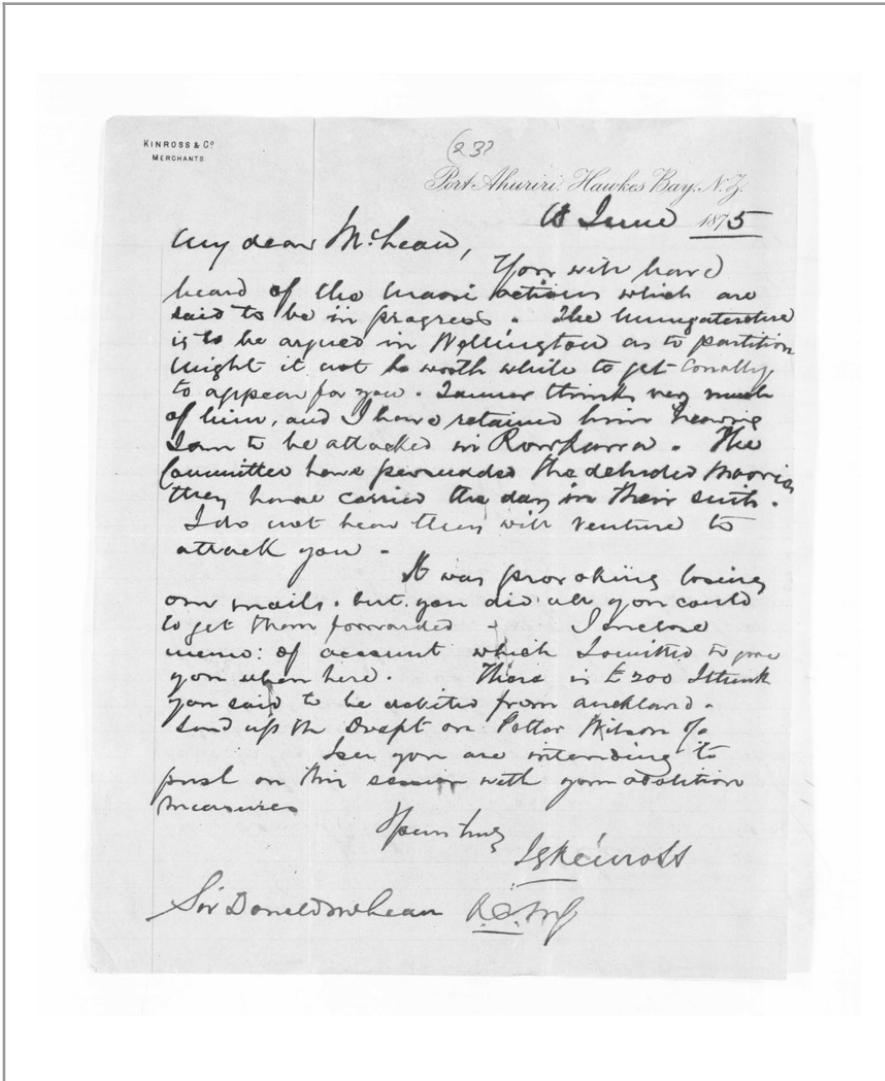 KINROSS & Co
MERCHANTS
(237
Port Ahuriri, Hawkes Bay, N.Z.
18 June 1875
My dear McLean,
You will have
heard of the Maori actions which are
said to be in progress. The
is to be argued in Wellington as to partition
might it not be worth while to get Conolly
to appear for you. Tanner thinks very much
of him, and I have retained him hearing
I am to be attacked in . The
Committee have persuaded the deluded Maories
they have carried the day in their suits.
I do not hear they will venture to
attack you -
It was provoking losing
our mails. but you did all you could
to get them forwarded - I enclose
memo: of account which I omitted to give
you when here. There is £200 I think
you said to be debited from Auckland.
Send up the Draft on Potter Wilson &c
I see you are intending to
push on this session with your abolition
measures
Yours truly
J G Kinross
Sir Donald McLean K.C.M.G